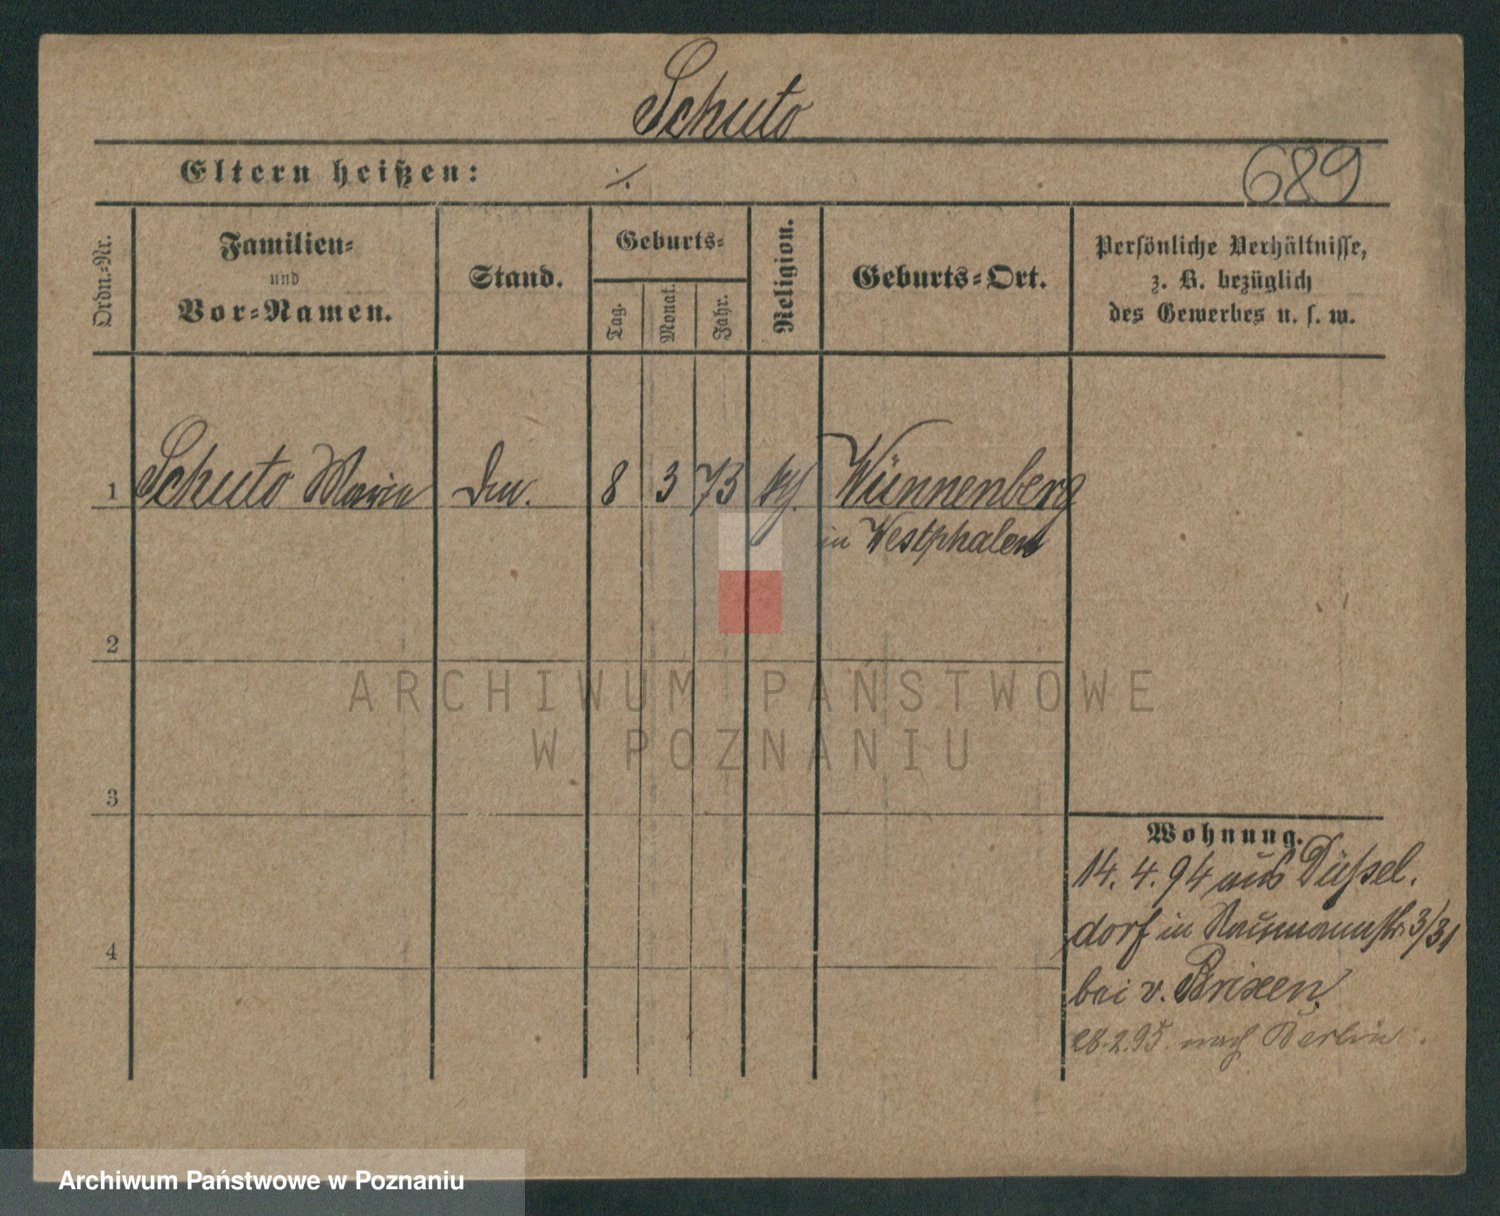 Schuto
Eltern heißen: ⁒
689
Ordn.-Nr.
Familien-
und
Vor-Namen.
Stand.
Geburts-
Tag.
Monat.
Jahr.
Religion.
Geburts-Ort.
Persönliche Verhältnisse,
z. B. bezüglich
des Gewerbes u. s. w.
1 Schuto Maria 8 3 73 Wünnenberg
in Westphalen
2
3
4
Wohnung.
14. 4. 94 aus Düssel.
dorf in Naumannstr. 3/31
bei v. Brixen
28.2.95 nach Berlin.
ARCHIWUM PAŃSTWOWE
W POZNANIU
Archiwum Państwowe w Poznaniu